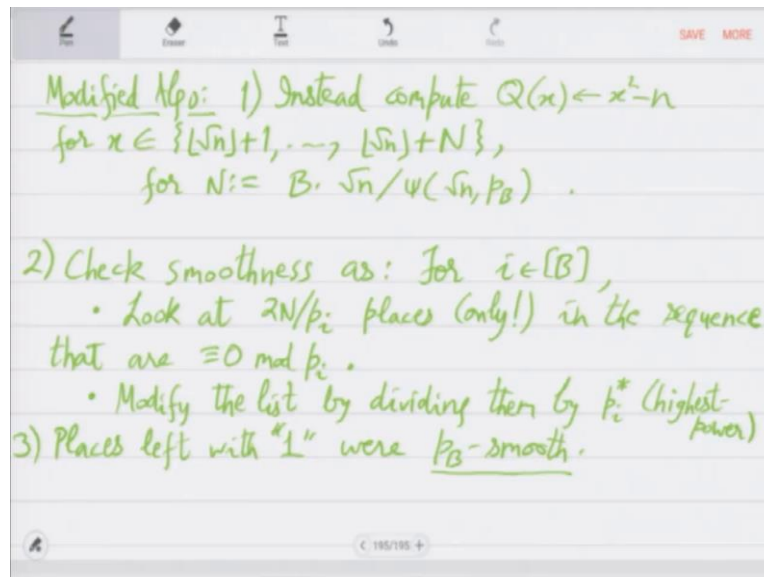 Pen Eraser Text Undo Redo SAVE MORE
Modified Algo: 1) Instead compute Q(x) ← x²-n
for x ∈ {⌊√n⌋+1, ..., ⌊√n⌋+N},
for N:= B. √n/ψ(√n, p_B) .
2) Check smoothness as: For i∈[B],
• Look at 2N/p_i places (only!) in the sequence
that are ≡0 mod p_i .
• Modify the list by dividing them by p_i* (highest-
power)
3) Places left with "1" were p_B-smooth.
195/195